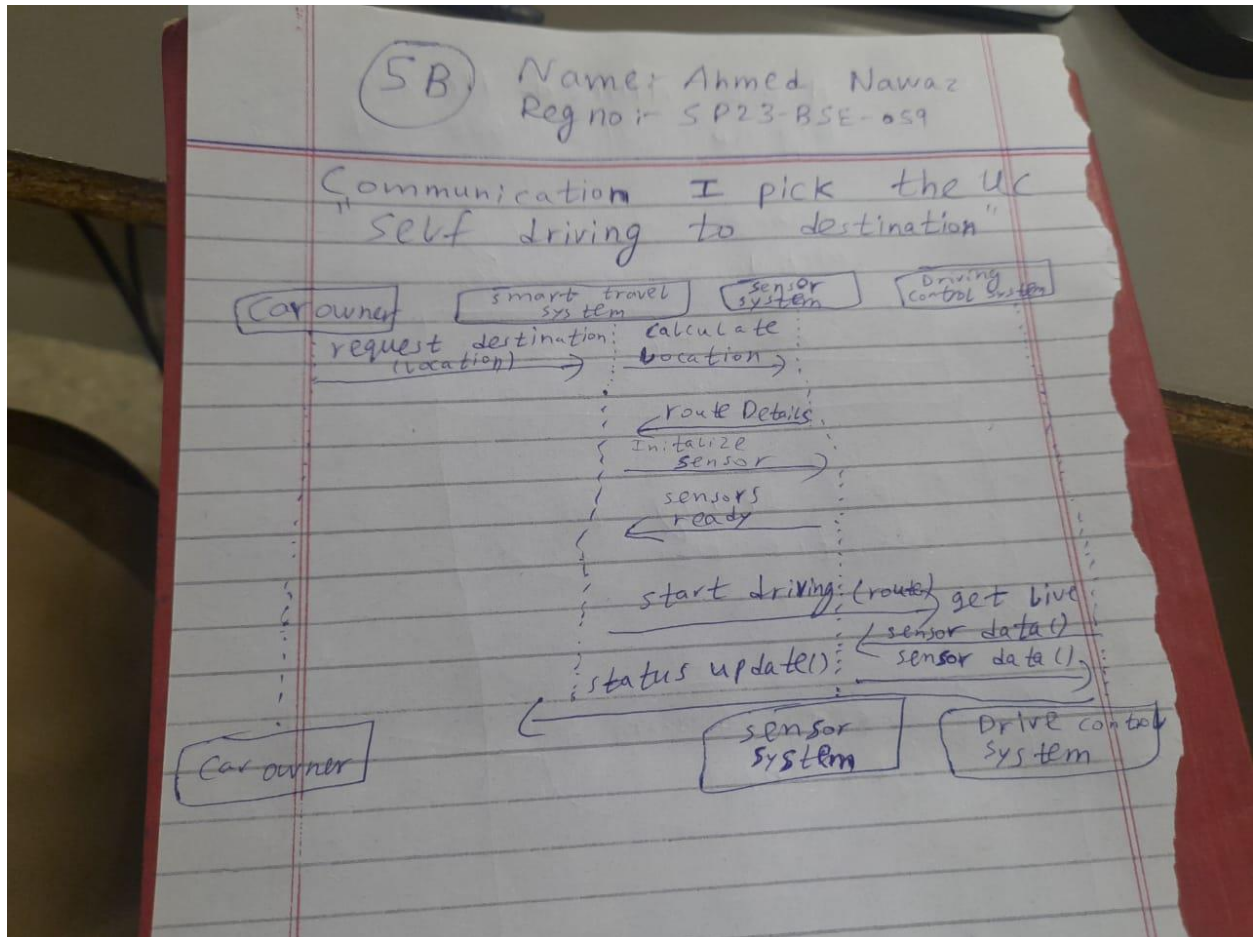 5B
Name:- Ahmed Nawaz
Reg no:- SP23-BSE-059
Communication I pick the UC
"Self driving to destination"
Car owner
smart travel
system
sensor
system
Driving
control system
request destination
(location)
calculate
Location
route Details
Initalize
sensor
sensors
ready
start driving (route)
get Live
sensor data()
sensor data()
status update()
Car owner
sensor
system
Drive control
system